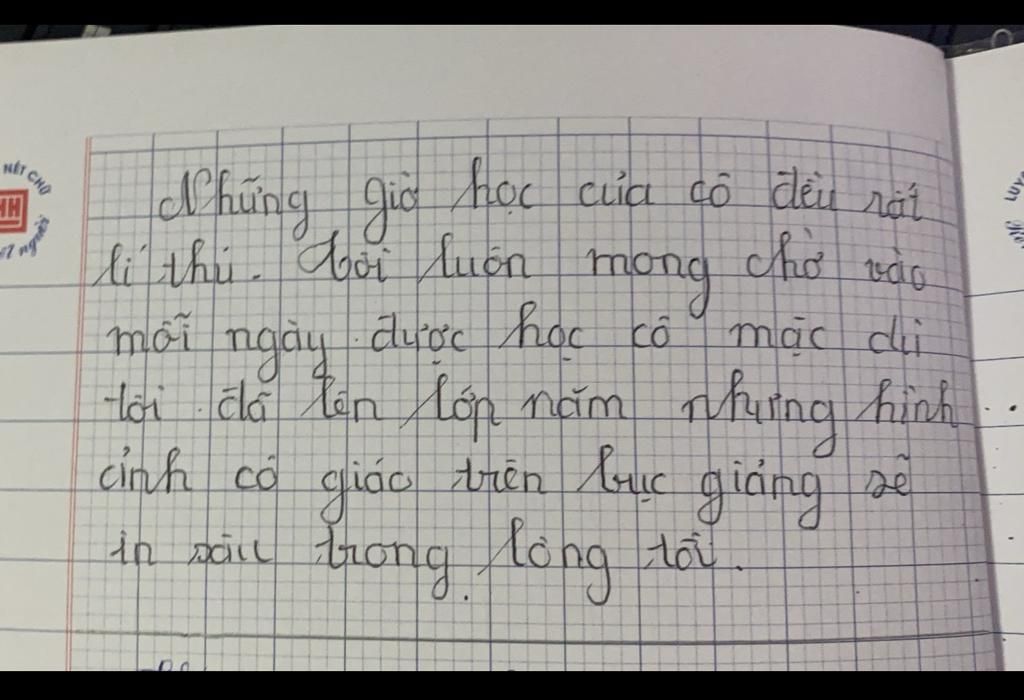 Những giờ học của cô đều rất
lí thú. Tôi luôn mong chờ vào
mỗi ngày được học cô mặc dù
tôi đã lên lớp năm nhưng hình
ảnh cô giáo trên bục giảng sẽ
in sâu trong lòng tôi.
NÉT CHỮ